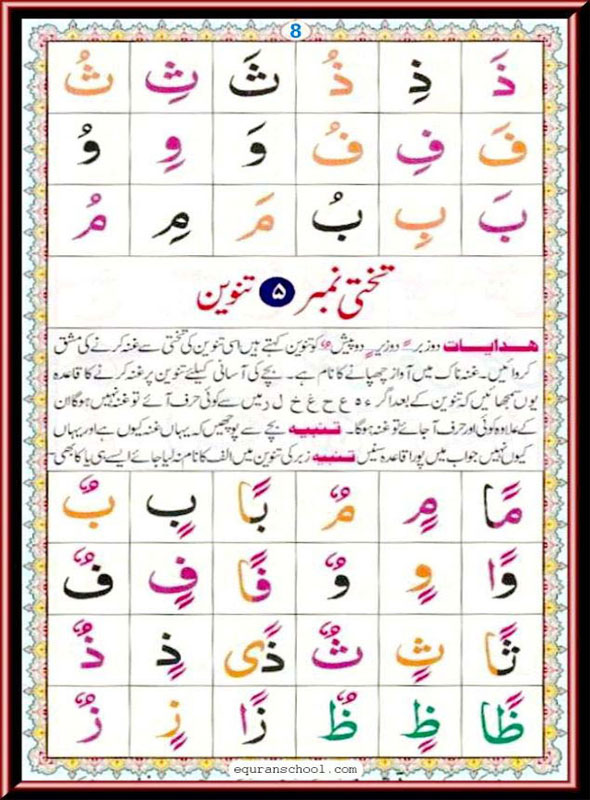 8
ذَ ذِ ذُ ثَ ثِ ثُ
فَ فِ فُ وَ وِ وُ
بَ بِ بُ مَ مِ مُ
تختی نمبر ۵ تنوین
ھدایات دو زبر ً دو زیر ٍ دو پیش ٌ کو تنوین کہتے ہیں اسی تنوین کی تختی سے غنہ کرنے کی مشق
کروائیں۔ غنہ ناک میں آواز چھپانے کا نام ہے۔ بچے کی آسانی کیلئے تنوین پر غنہ کرنے کا قاعدہ
یوں سمجھائیں کہ تنوین کے بعد اگر ء ہ ع ح غ خ ل ر میں سے کوئی حرف آئے تو غنہ نہیں ہوگا ان
کے علاوہ کوئی اور حرف آجائے تو غنہ ہوگا۔ تنبیہ بچے سے پوچھیں کہ یہاں غنہ کیوں ہے اور یہاں
کیوں نہیں جواب میں پورا قاعدہ سنیں تنبیہ زبر کی تنوین میں الف کا نام نہ لیا جائے ایسے ہی یا کا بھی
مًا مٍ مٌ بًا بٍ بٌ
وًا وٍ وٌ فًا فٍ فٌ
ثًا ثٍ ثٌ ذًی ذٍ ذٌ
ظًا ظٍ ظٌ زًا زٍ زٌ
equranschool.com